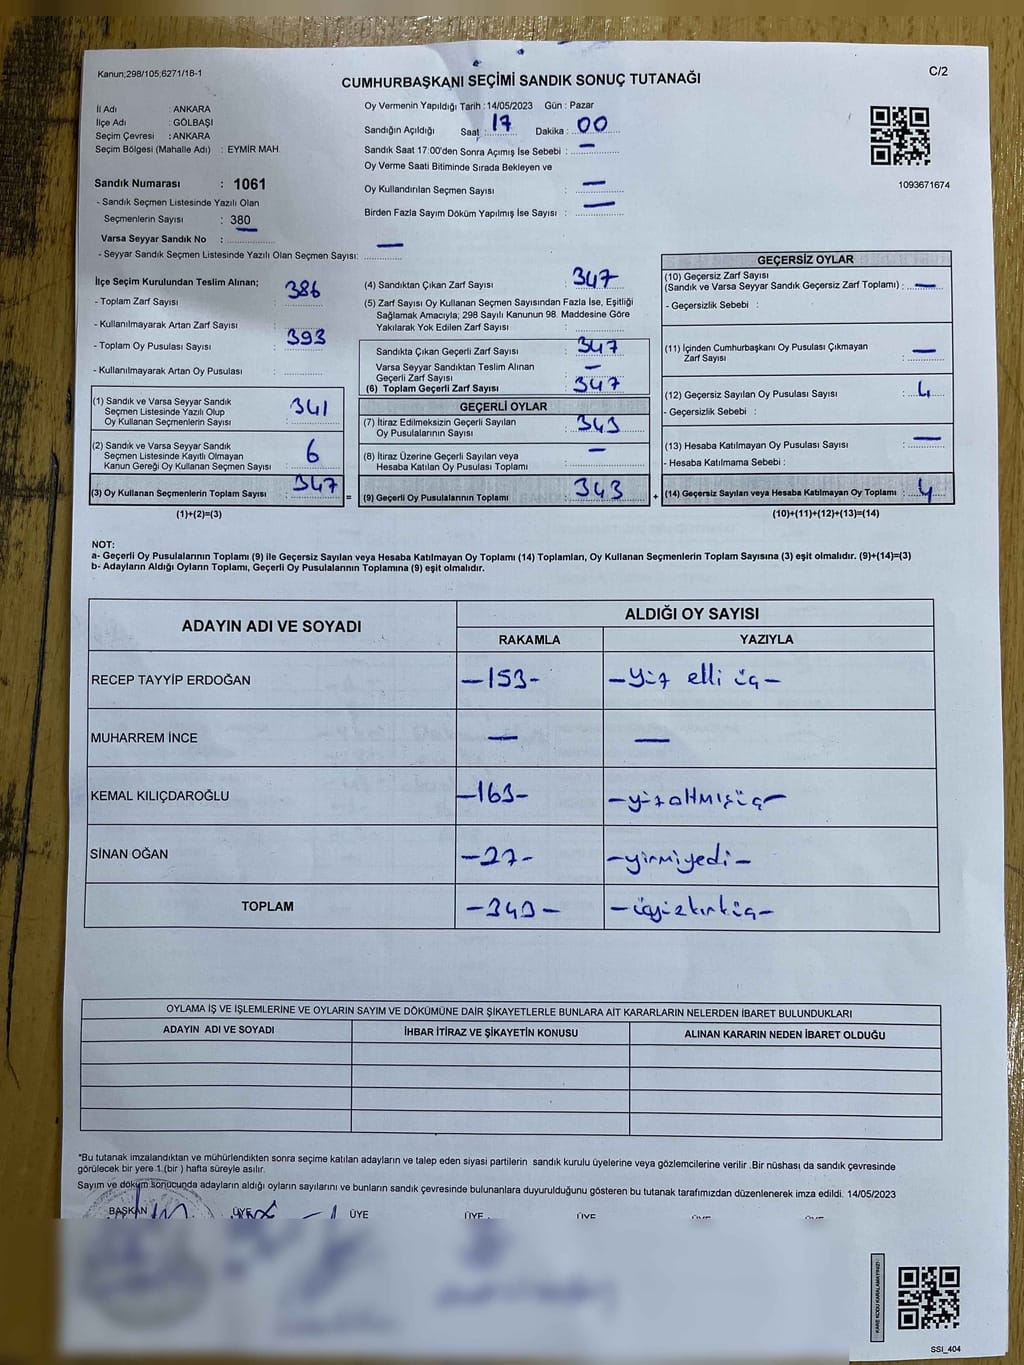 Kanun;298/105;6271/18-1
C/2
CUMHURBAŞKANI SEÇİMİ SANDIK SONUÇ TUTANAĞI
İl Adı : ANKARA
İlçe Adı : GÖLBAŞI
Seçim Çevresi : ANKARA
Seçim Bölgesi (Mahalle Adı) : EYMİR MAH.
Sandık Numarası : 1061
- Sandık Seçmen Listesinde Yazılı Olan
Seçmenlerin Sayısı : 380
Varsa Seyyar Sandık No :
- Seyyar Sandık Seçmen Listesinde Yazılı Olan Seçmen Sayısı: —
Oy Vermenin Yapıldığı Tarih :14/05/2023 Gün : Pazar
Sandığın Açıldığı Saat : 17 Dakika : 00
Sandık Saat 17:00'den Sonra Açımış İse Sebebi : —
Oy Verme Saati Bitiminde Sırada Bekleyen ve
Oy Kullandırılan Seçmen Sayısı : —
Birden Fazla Sayım Döküm Yapılmış İse Sayısı : —
1093671674
İlçe Seçim Kurulundan Teslim Alınan;
- Toplam Zarf Sayısı : 386
- Kullanılmayarak Artan Zarf Sayısı :
- Toplam Oy Pusulası Sayısı : 393
- Kullanılmayarak Artan Oy Pusulası :
(1) Sandık ve Varsa Seyyar Sandık
Seçmen Listesinde Yazılı Olup
Oy Kullanan Seçmenlerin Sayısı : 341
(2) Sandık ve Varsa Seyyar Sandık
Seçmen Listesinde Kayıtlı Olmayan
Kanun Gereği Oy Kullanan Seçmen Sayısı : 6
(3) Oy Kullanan Seçmenlerin Toplam Sayısı : 347 =
(1)+(2)=(3)
(4) Sandıktan Çıkan Zarf Sayısı : 347
(5) Zarf Sayısı Oy Kullanan Seçmen Sayısından Fazla İse, Eşitliği
Sağlamak Amacıyla; 298 Sayılı Kanunun 98. Maddesine Göre
Yakılarak Yok Edilen Zarf Sayısı :
Sandıkta Çıkan Geçerli Zarf Sayısı : 347
Varsa Seyyar Sandıktan Teslim Alınan
Geçerli Zarf Sayısı : —
(6) Toplam Geçerli Zarf Sayısı : 347
GEÇERLİ OYLAR
(7) İtiraz Edilmeksizin Geçerli Sayılan
Oy Pusulalarının Sayısı : 343
(8) İtiraz Üzerine Geçerli Sayılan veya
Hesaba Katılan Oy Pusulası Toplamı : —
(9) Geçerli Oy Pusulalarının Toplamı : 343 +
GEÇERSİZ OYLAR
(10) Geçersiz Zarf Sayısı
(Sandık ve Varsa Seyyar Sandık Geçersiz Zarf Toplamı) : —
- Geçersizlik Sebebi :
(11) İçinden Cumhurbaşkanı Oy Pusulası Çıkmayan
Zarf Sayısı : —
(12) Geçersiz Sayılan Oy Pusulası Sayısı : 4
- Geçersizlik Sebebi :
(13) Hesaba Katılmayan Oy Pusulası Sayısı : —
- Hesaba Katılmama Sebebi :
(14) Geçersiz Sayılan veya Hesaba Katılmayan Oy Toplamı : 4
(10)+(11)+(12)+(13)=(14)
NOT:
a- Geçerli Oy Pusulalarının Toplamı (9) ile Geçersiz Sayılan veya Hesaba Katılmayan Oy Toplamı (14) Toplamları, Oy Kullanan Seçmenlerin Toplam Sayısına (3) eşit olmalıdır. (9)+(14)=(3)
b- Adayların Aldığı Oyların Toplamı, Geçerli Oy Pusulalarının Toplamına (9) eşit olmalıdır.
ADAYIN ADI VE SOYADI
ALDIĞI OY SAYISI
RAKAMLA YAZIYLA
RECEP TAYYİP ERDOĞAN —153— —yüz elli üç—
MUHARREM İNCE — —
KEMAL KILIÇDAROĞLU —163— —yüzaltmışüç—
SİNAN OĞAN —27— —yirmiyedi—
TOPLAM —343— —üçyüzkırküç—
OYLAMA İŞ VE İŞLEMLERİNE VE OYLARIN SAYIM VE DÖKÜMÜNE DAİR ŞİKAYETLERLE BUNLARA AİT KARARLARIN NELERDEN İBARET BULUNDUKLARI
ADAYIN ADI VE SOYADI İHBAR İTİRAZ VE ŞİKAYETİN KONUSU ALINAN KARARIN NEDEN İBARET OLDUĞU
*Bu tutanak imzalandıktan ve mühürlendikten sonra seçime katılan adayların ve talep eden siyasi partilerin sandık kurulu üyelerine veya gözlemcilerine verilir .Bir nüshası da sandık çevresinde
görülecek bir yere 1.(bir ) hafta süreyle asılır.
Sayım ve döküm sonucunda adayların aldığı oyların sayılarını ve bunların sandık çevresinde bulunanlara duyurulduğunu gösteren bu tutanak tarafımızdan düzenlenerek imza edildi. 14/05/2023
BAŞKAN ÜYE ÜYE ÜYE ÜYE ÜYE ÜYE
KARE KODU KARALAMAYINIZ!
SSI_404